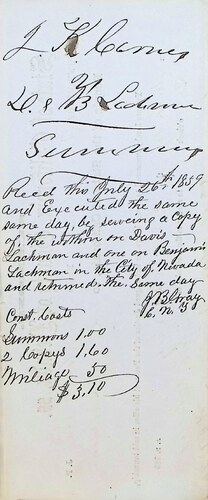 J K Carnes
vs
D. & B Lachman
Summons
Recd this July 26th 1859
and Executed the same
same day, by serveing a Copy
of the within on Davis
Lachman and one on Benjamin
Lachman in the City of Nevada
and returned the same day
Const. Costs
Summons 1.00
2 Copys 1.60
Mileage 50
$3.10